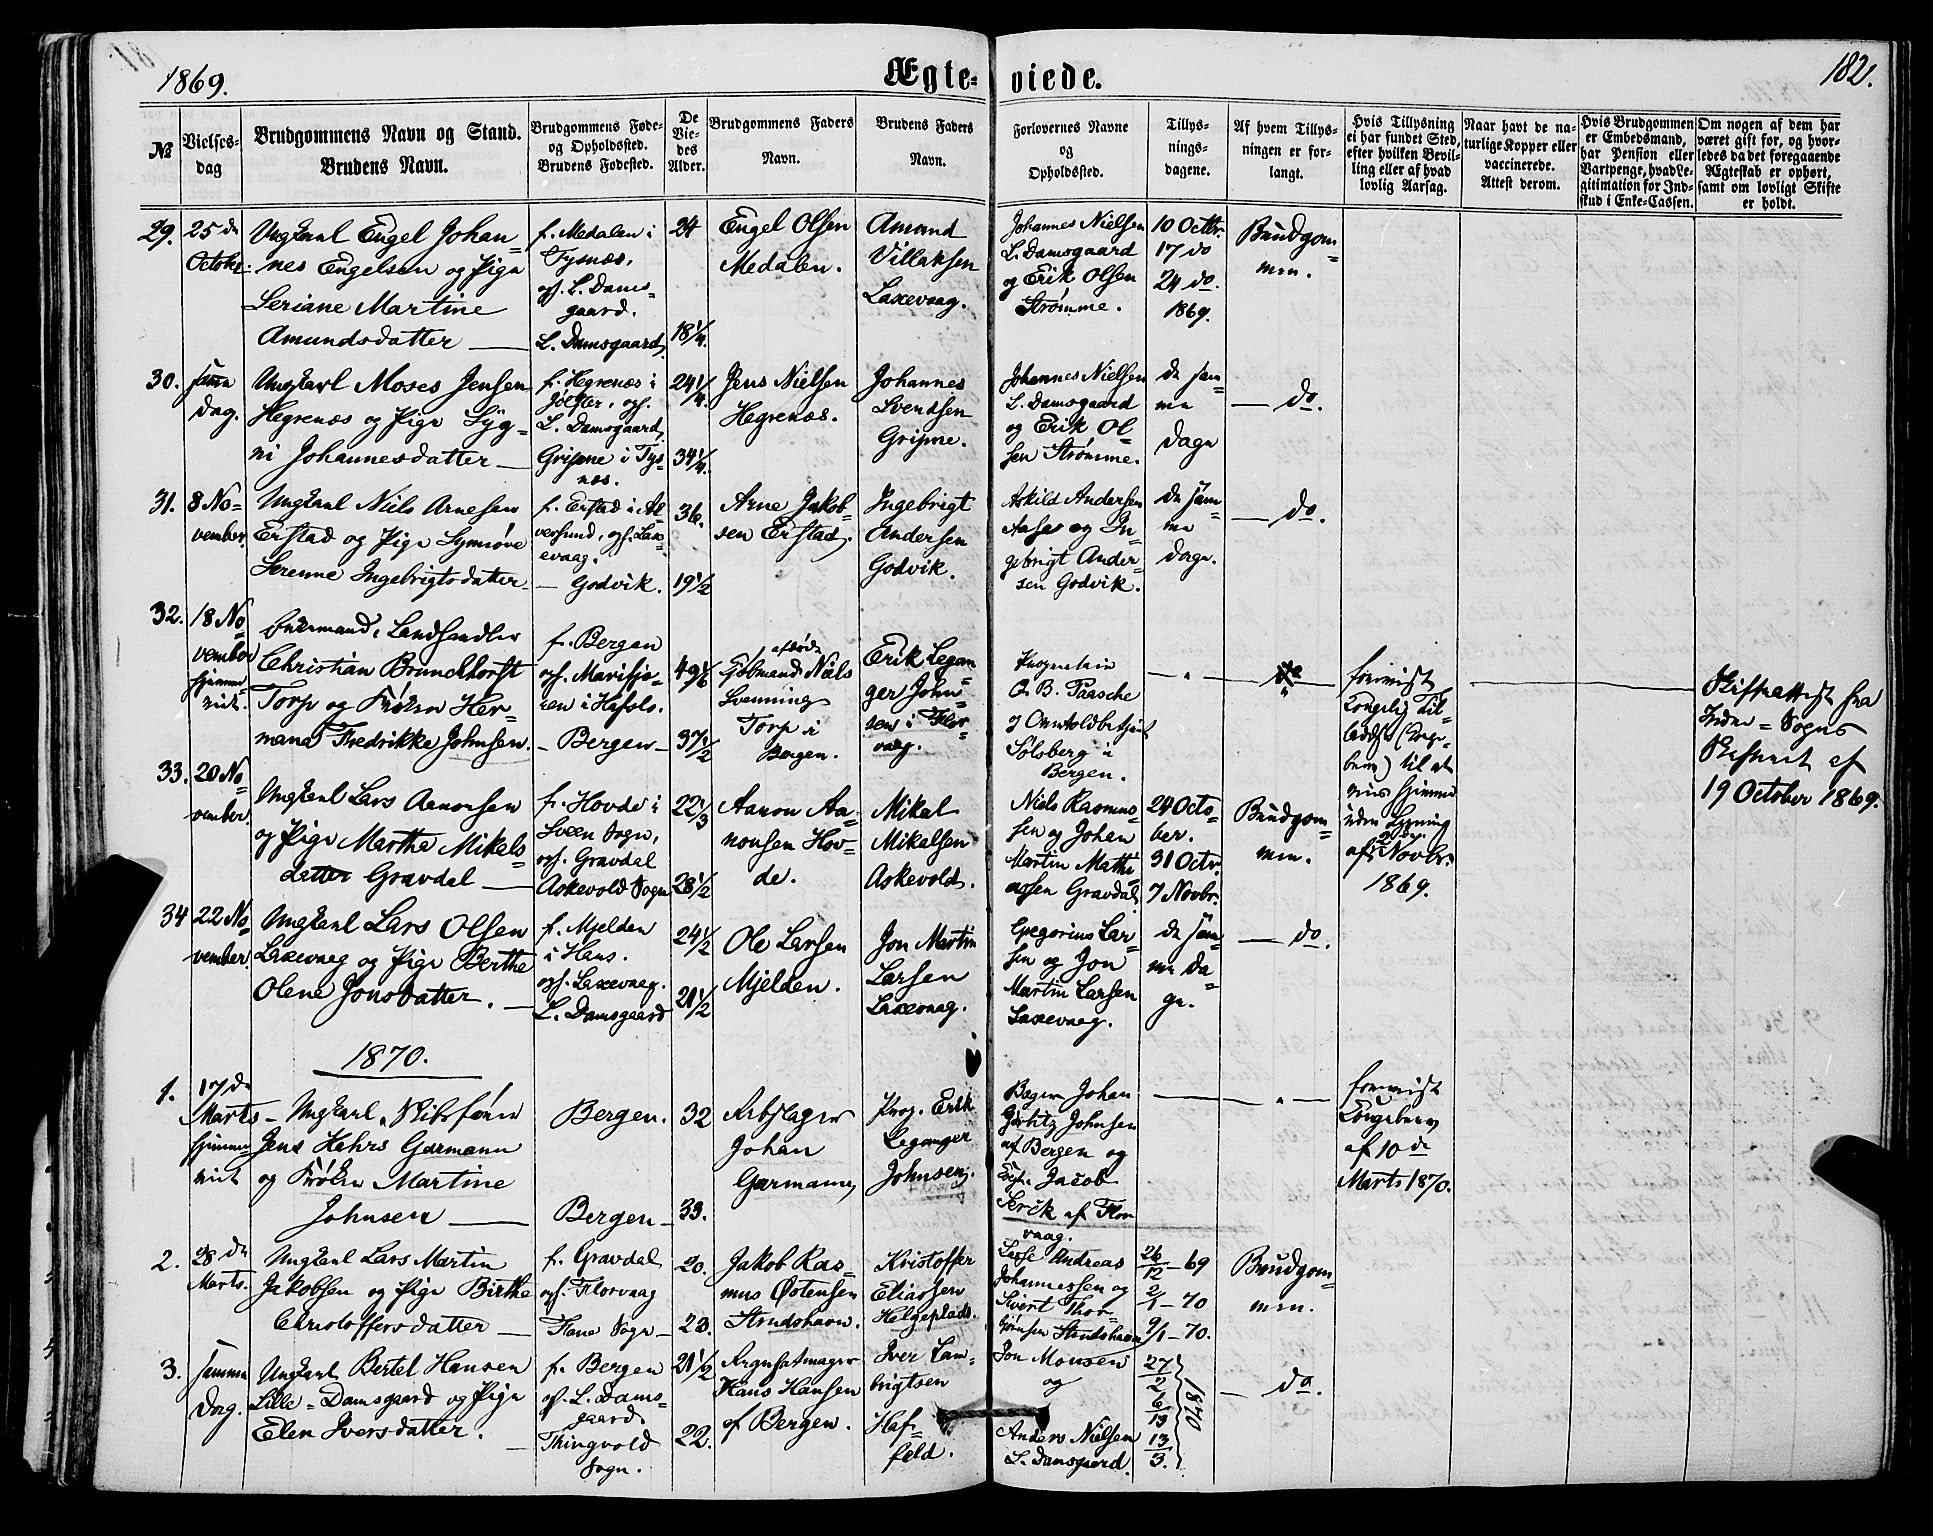 1869.
Ægteviede.
182.
№
Vielses-
dag
Brudgommens Navn og Stand.
Brudens Navn.
Brudgommens Føde-
og Opholdssted.
Brudens Fødested.
De
Vie-
des
Alder.
Brudgommens Faders
Navn.
Brudens Faders
Navn.
Forlovernes Navne
og
Opholdssted.
Tillys-
nings-
dagene.
Af hvem Tillys-
ningen er for-
langt.
Hvis Tillysning
ei har fundet Sted,
efter hvilken Bevil-
ling eller af hvad
lovlig Aarsag.
Naar havt de na-
turlige Kopper eller
vaccinerede.
Attest derom.
Hvis Brudgommen
er Embedsmand,
har Pension eller
Vartpenge, hvad Le-
gitimation for Ind-
skud i Enke-Cassen.
Om nogen af dem har
været gift før, og hvor-
ledes da det foregaaende
Ægteskab er ophørt,
samt om lovligt Skifte
er holdt.
29.
25 de
Octobr.
Ungkarl Engel Johan-
nes Engelsen og Pige
Seriane Martine
Amundsdatter
f. Medalen i
Tysnæs,
oph. L. Dams-
gaard.
L. Damsgaard
24
18 1/4.
Engel Olsen
Medalen.
Amund
Villaksen
Laxevaag.
Johannes Nielsen
L. Damsgaard
og Erik Olsen
Strømme.
10 Octbr.
17 do
24 do.
1869.
Brudgom-
men.
30.
samme
Dag.
Ungkarl Moses Jensen
Hegrenæs og Pige Syg-
ni Johannesdatter
f. Hegrenæs i
Jølster, oph.
L. Damsgaard
i Tys-
næs.
24 1/4.
34 1/4.
Jens Nielsen
Hegrenæs.
Johannes
Svendsen
Johannes Nielsen
L. Damsgaard
og Erik Ol-
sen Strømme.
de sam-
me
Dage
do.
31.
8 No-
vember.
Ungkarl Niels Arnesen
Erstad og Pige Synnøve
Serenne Ingebrigtsdatter
f. Erstad i Al-
versund, oph. Lax-
evaag.
Godvik.
36.
19 1/2
Arne Jakob-
sen Erstad.
Ingebrigt
Andersen
Godvik.
Askild Andersen
og In-
gebrigt Ander-
sen Godvik.
de sam-
me
Dage.
do.
32.
18 No-
vember
hjemme-
viet.
Enkemand, Landhandler
Christian Brunchhorst
Torp og Frøken Her-
mana Fredrikke Johnsen.
f. Bergen
oph. Marifjæ-
ren i Hafslo.
Bergen
49 1/6
37 1/2
afdøde
Kjøbmand Niels
Svenning
Torp i
Bergen.
Erik Legan-
ger John-
sen i Flor-
vaag.
O. B. Paasche
Solsberg i
Bergen.
foreviist
Kongelig Til-
ladelse (Konge-
brev) til at
vies hjemme
uden Lysning
af 2 de Novbr.
1869.
Skifteattest fra
Indre-Sogns
Skifteret af
19 October 1869.
33.
20 No-
vember.
Ungkarl Lars Aanonsen
og Pige Marthe Mikels-
datter Gravdal
f. Hovde i
Sveen Sogn,
oph. Gravdal
Askevold Sogn
22 1/3
28 1/2
Aanon Aa-
nonsen Hov-
de.
Mikal
Mikalsen
Askevold.
Niels Rasmus-
sen og Johan
Martin Mathi-
assen Gravdal
24 Octo-
ber.
31 Octr.
7 Novbr.
Brudgom-
men.
34
22 No-
vember.
Ungkarl Lars Olsen
Laxevaag og Pige Berthe
Olene Jonsdatter.
f. Mjelden
i Haus.
oph. Laxevaag.
L. Damsgaard
24 1/2
21 1/2
Ole Larsen
Mjelden.
Jon Martin
Larsen
Laxevaag.
Gregorius Lar-
sen og Jon
Martin Larsen
Laxevaag.
de sam-
me Da-
ge.
do.
1870.
1.
17 de
Marts
hjemme-
viet
Ungkarl, Skibsfører
Jens Hahrs Garmann
og Frøken Martine
Johnsen
Bergen.
Bergen
32
33.
Rebslager
Johan
Garmann
Prop. Erik
Leganger
Johnsen.
Bager Johan
Johnsen
af Bergen og
Jacob
af Flor-
vaag.
foreviist
Kongebrev
af 10 de
Marts 1870.
2.
28 de
Marts.
Ungkarl Lars Martin
Jakobsen og Pige Birthe
Christoffersdatter
f. Gravdal
oph. Florvaag
Sogn
20.
23.
Jakob Ras-
mus Østensen
Strudshavn.
Kristoffer
Eliassen
Andreas
Johannessen og
Sivert Thor-
Strudshavn
26/12 - 69
2/1 - 70
9/1 - 70.
Brudgom-
men.
3.
samme
Dag.
Ungkarl Bertel Hansen
Lille-Damsgaard og Pige
Elen Iversdatter.
f. Bergen
oph. L. Dams-
gaard.
Thingvold
Sogn.
21 1/2
22.
Hans Hansen
af Bergen.
Iver Lam-
brigtsen
Haf-
feld.
Jon Monsen
og
Anders Nielsen
L. Damsgaard.
27/2
6/13
13/3.
1870
do.